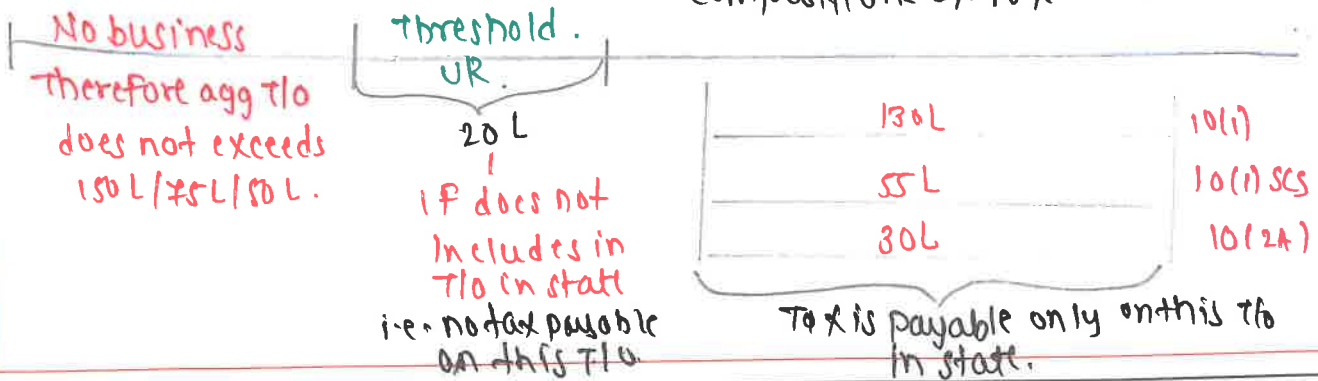 No business
therefore agg T/o
does not exceeds
150L/75L/50L.
threshold.
UR.
20L
if does not
includes in
T/o in state
i.e. no tax payable
on this T/o.
130L 10(1)
55L 10(1) SCS
30L 10(2A)
Tax is payable only on this T/o
in state.